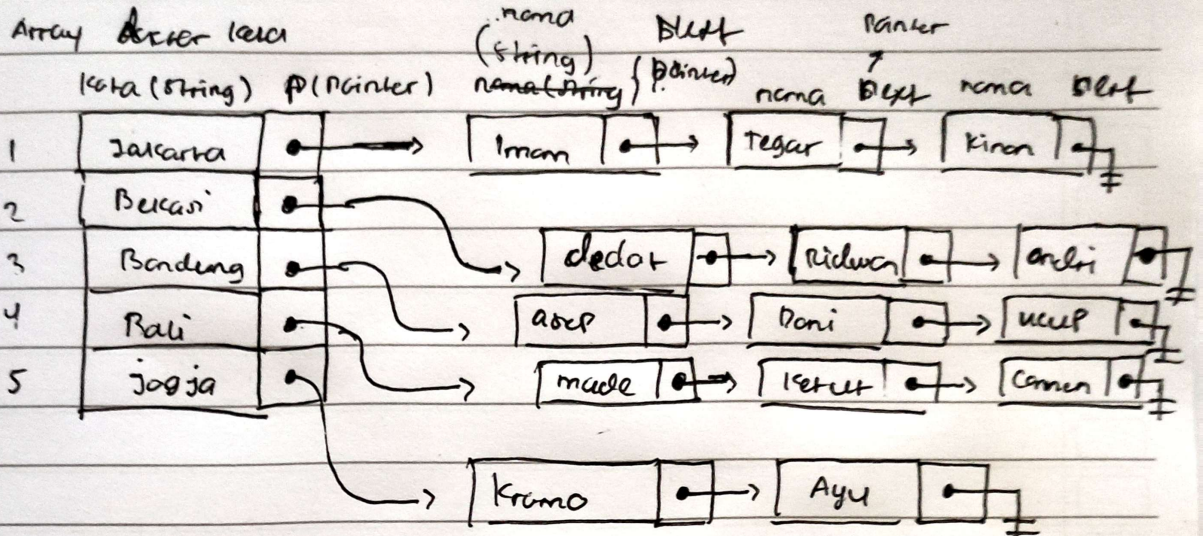 Array kota
nama
(string) Next Pointer
kota (string) P (Pointer) nama (string) (Pointer) nama Next nama Next
1 Jakarta Iman Tegar Kinan
2 Bekasi
3 Bandung dedat Ridwan andri
4 Bali asep Dani ucup
5 jogja made Ketut
Kromo Ayu